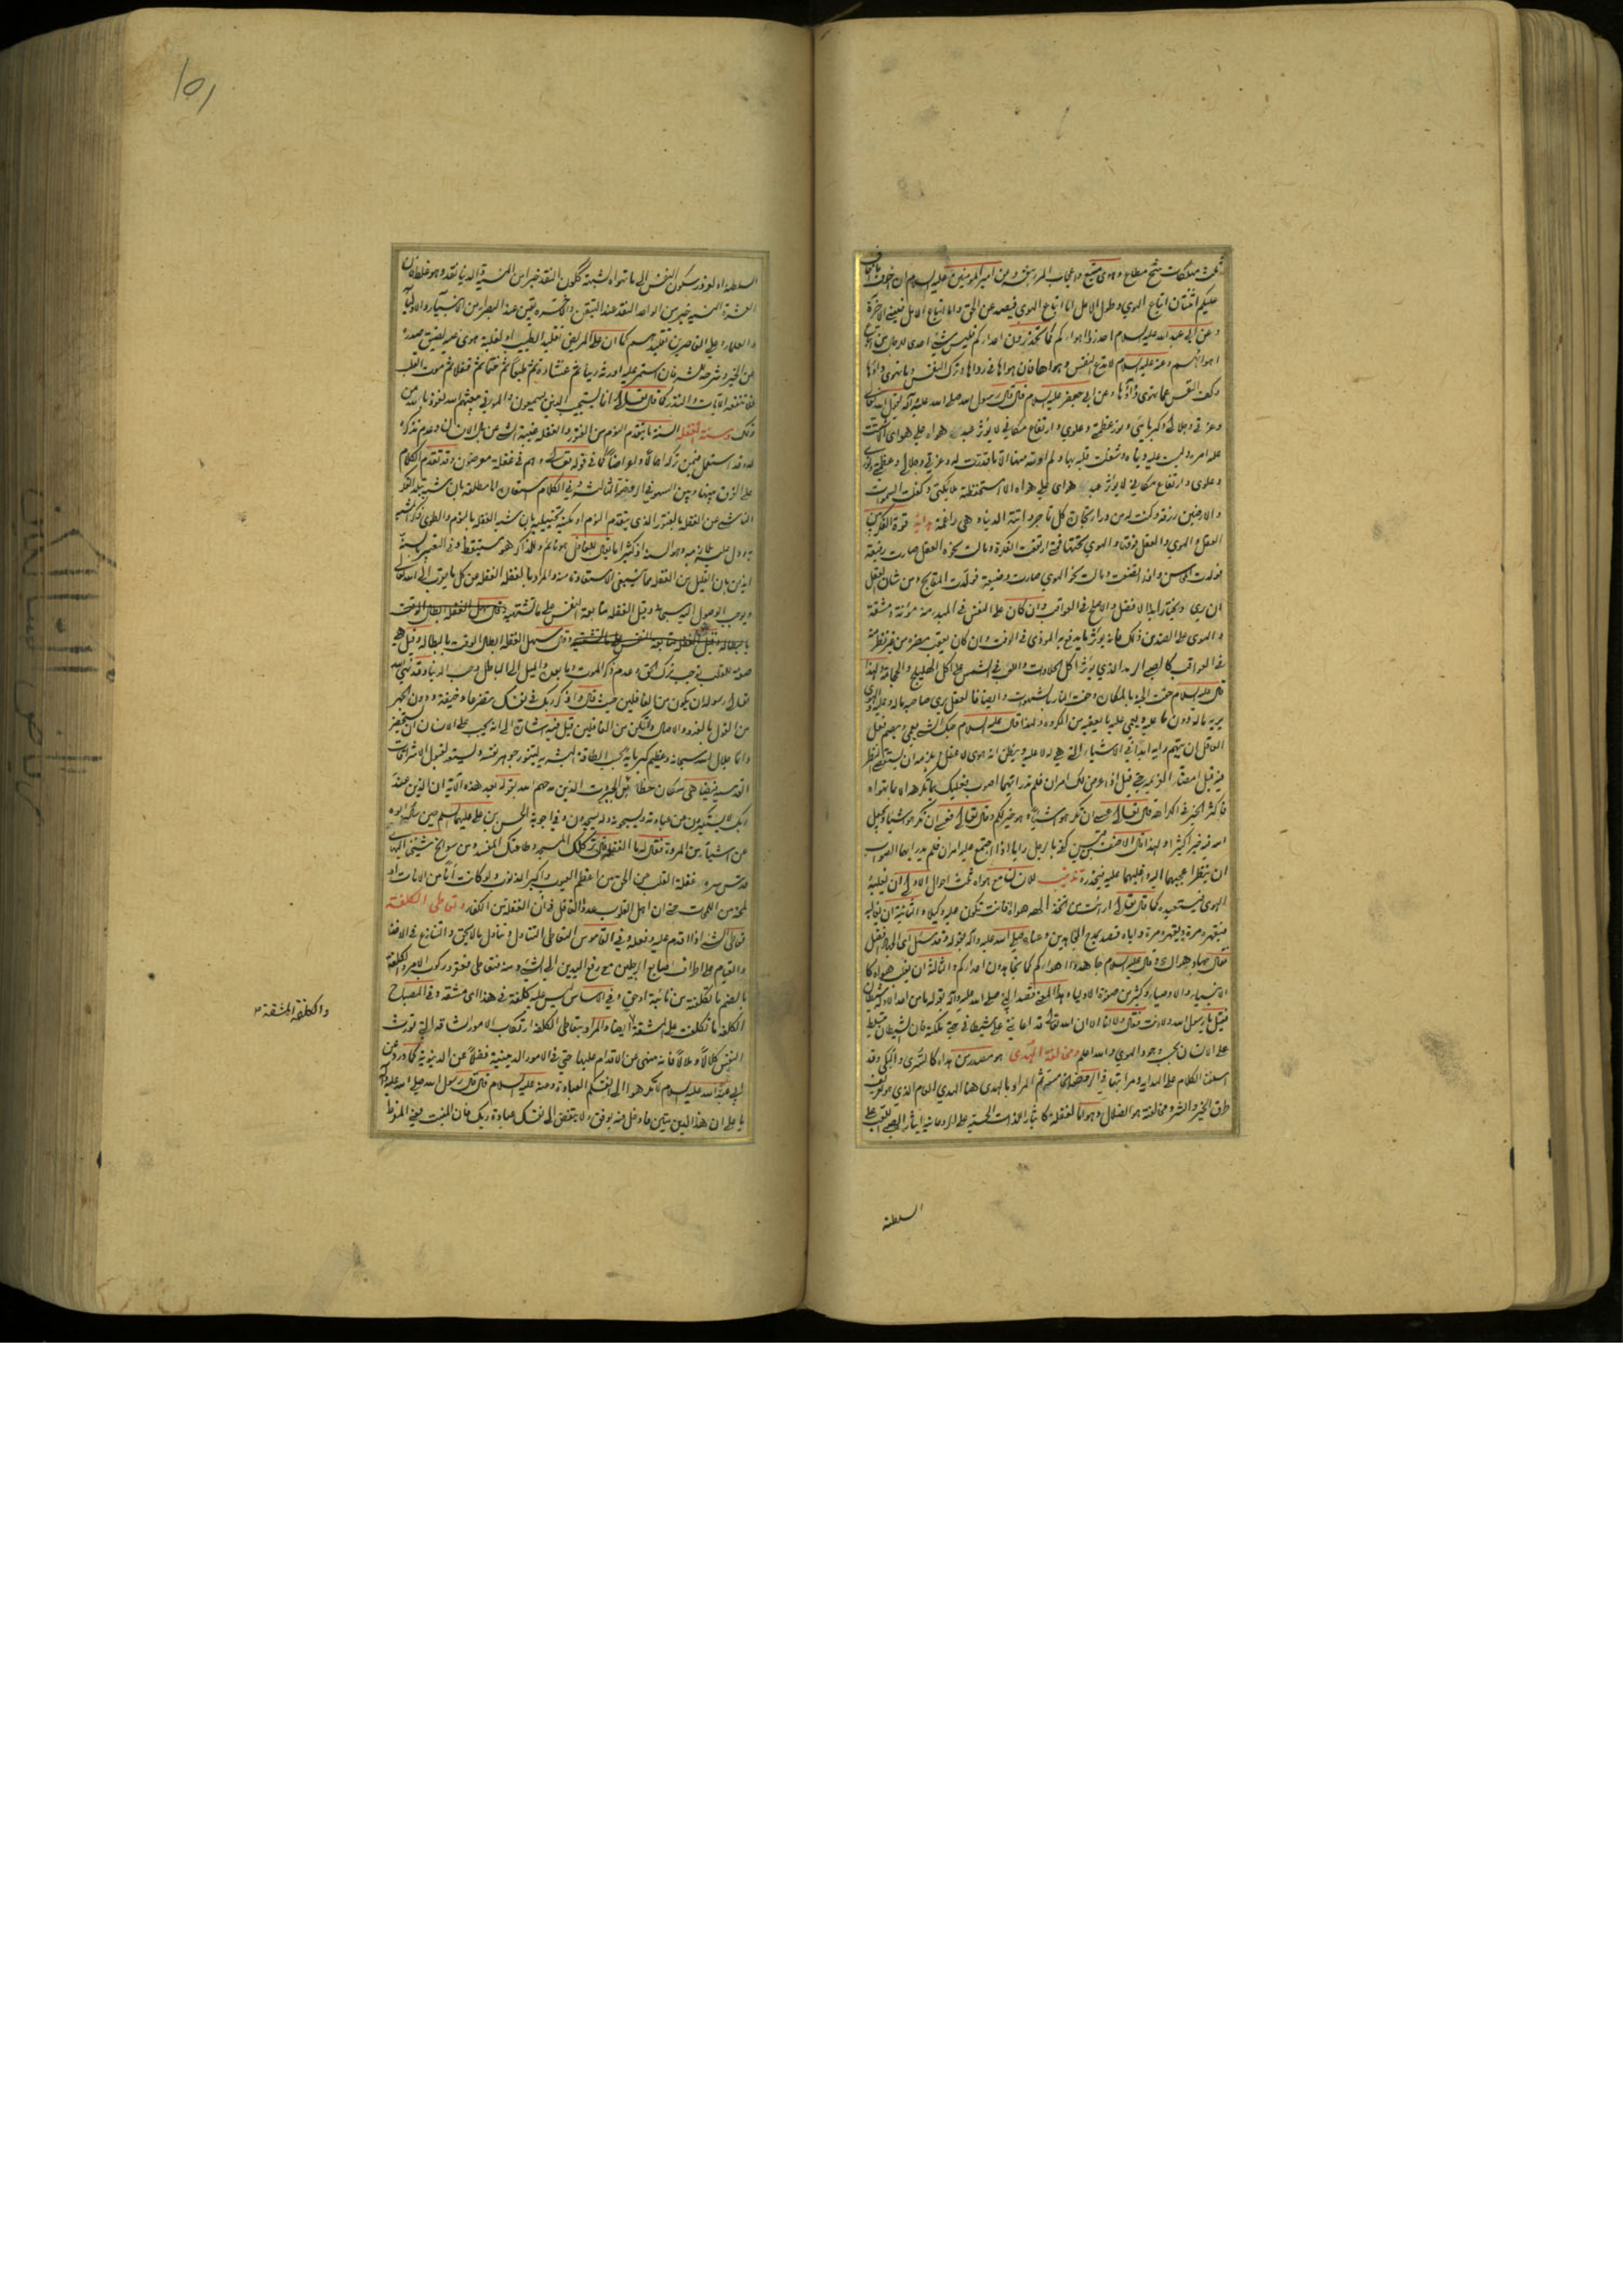 ثلث مهلكات شح مطاع وهوى متبع واعجاب المرء بنفسه وعن امير المؤمنين عليه السلام ان اخوف ما اخاف
عليكم اثنتان اتباع الهوى وطول الامل اما اتباع الهوى فيصد عن الحق واما اتباع الامل فينسى الاخرة
وعن ابي عبد الله عليه السلام احذروا اهواءكم كما تحذرون اعداءكم فليس شيء اعدى للرجال من اتباع
اهوائهم وعنه عليه السلام لا تدع النفس وهواها فان هواها في رداها وترك النفس وما تهوى داؤها
وكف النفس عما تهوى دواؤها وعن ابي جعفر عليه السلام قال قال رسول الله صلى الله عليه وآله يقول الله تعالى
وعزتي وجلالي وكبريائي ونوري وعظمتي وعلوي وارتفاع مكاني لا يؤثر عبد هواه على هواي الا شتت
عليه امره ولبست عليه دنياه وشغلت قلبه بها ولم اوته منها الا ما قدرت له وعزتي وجلالي وعظمتي ونوري
وعلوي وارتفاع مكاني لا يؤثر عبد هواي على هواه الا استحفظته ملائكتي وكفلت السموات
والارضين رزقه وكنت له من وراء تجارة كل تاجر واتته الدنيا وهي راغمة قوة الفكر بين
العقل والهوى والعقل فوقها والهوى تحتها فمتى ارتفعت الفكرة ومالت نحو العقل صارت رفيعة
فولدت المحاسن واذا اتضعت ومالت نحو الهوى صارت وضيعة فولدت المقابح ومن شان العقل
ان يرى ويختار ابدا الافضل والاصلح في العواقب وان كان على النفس في المبدء منه مؤنة ومشقة
والهوى على الضد من ذلك فانه يؤثر ما يدفع به المؤذي في الوقت وان كان يعقب مضرة من غير نظر منه
في العواقب كالصبي الرمد الذي يؤثر اكل الحلاوات واللعب في الشمس على اكل الهليلج والحجامة ولهذا
قال عليه السلام حفت الجنة بالمكاره وحفت النار بالشهوات وايضا فالعقل يرى صاحبه ما له وعليه والهوى
يريه ما له دون ما عليه ويعمي عليه ما يعقبه من المكروه ولهذا قال عليه السلام حبك الشيء يعمي ويصم فعلى
العاقل ان يتهم رايه ابدا في الاشياء التي هي له لا عليه ويظن انه هوى لا عقل ويلزمه ان يستقصي النظر
فيه قبل امضاء العزيمة حتى قيل اذا عرض لك امران فلم تدر ايهما اصوب فعليك بما تكرهه لا بما تهواه
فاكثر الخير في الكراهة قال تعالى عسى ان تكرهوا شيئا وهو خير لكم وقال تعالى فعسى ان تكرهوا شيئا ويجعل
الله فيه خيرا كثيرا ولهذا قال الاحنف بن قيس كفى بالرجل رايا اذا اجتمع عليه امران فلم يدر ايهما الصواب
ان ينظر اعجبهما اليه واغلبهما عليه فيحذره تذنيب للانسان مع هواه ثلث احوال الاولى ان يغلبه
الهوى فيستعبده كما قال تعالى ارايت من اتخذ الهه هواه افانت تكون عليه وكيلا والثانية ان يغالبه
فيقهره مرة ويقهره مرة واياه قصد بمدح المجاهدين وعناه صلى الله عليه وآله بقوله وقد سئل اي الجهاد افضل
فقال جهاد هواك وقال عليه السلام جاهدوا اهواءكم كما تجاهدون اعداءكم والثالثة ان يغلب هواه كا
لانبياء والاوصياء وكثير من صفوة الاولياء وهذا المعنى قصد النبي صلى الله عليه وآله بقوله ما من احد الا وله شيطان
فقيل يا رسول الله ولا انت فقال ولا انا الا ان الله تعالى قد اعانني على شيطاني حتى ملكته فان الشيطان يتسلط
على الانسان بحسب وجود الهوى والله اعلم ومخالفة الهدى هو مصدر من هداه كالسرى والبكى وقد
اسلفنا الكلام على الهداية ومراتبها في الروضة الخامسة ثم المراد بالهدى هنا الهدى العام الذي هو تعريف
طرق الخير والشر ومخالفته هو الضلال وهو اما لغفلة كايثار اللذات الحسية على الروحانية ايثار الصبي اللعب على
السلطنة
السلطنة او لغرور سكون النفس الى ما تهواه لشبهة ككون النقد خيرا من النسية والدنيا نقد وهو غلط فان
العشرة النسية خير من الواحد النقد عند التيقن والآخرة يقين عند البصراء من الانبياء والاولياء
والعلماء وعلى القاصرين تقليدهم كما ان على المريض تقليد الطبيب او لغلبة هوى عمي لضيق صدره
عن الخير وشرحه للشر فان استمر عليه اورثه رينا ثم غشاوة ثم طبعا ثم ختما ثم قفلا ثم موت القلب
فلا تنفعه الآيات والنذر كما قال تعالى انما يستجيب الذين يسمعون والموتى يبعثهم الله نعوذ بالله من
ذلك وسنة الغفلة السنة ما يتقدم النوم من الفتور والغفلة غيبة الشيء عن بال الانسان وعدم تذكره
له وقد استعمل فيمن تركه اهمالا واعراضا كما في قوله تعالى وهم في غفلة معرضون وقد تقدم الكلام
على الفرق بينها وبين السهو في الروضة الثالثة وفي الكلام استعارة اما مطلقة بان شبه تبلد الفكر
الناشي عن الغفلة بالفتور الذي يتقدم النوم او مكنية تخييلية بان شبه الغفلة بالنوم وطوى ذكر المشبه
به ودل عليه بلازمه وهو السنة اذ كثيرا ما يقال للغافل هو نائم وللذاكر هو مستيقظ وفي التعبير بالسنة
ايذان بان القليل من الغفلة مما ينبغي الاستعاذة منه والمراد بالغفلة الغفلة عن كل ما يقرب الى الله تعالى
ويوجب الوصول اليه سبحانه وقيل الغفلة متابعة النفس على ما تشتهيه وقال سهل الغفلة ابطال الوقت
بالبطالة وقيل الغفلة متابعة النفس على ما تشتهيه وقال سهل الغفلة ابطال الوقت بالبطالة وقيل هي
صفة للقلب توجب ترك الحق وعدم ذكر الموت وما بعده والميل الى الباطل وحب الدنيا وقد نهى الله
تعالى رسوله ان يكون من الغافلين حيث قال واذكر ربك في نفسك تضرعا وخيفة ودون الجهر
من القول بالغدو والآصال ولا تكن من الغافلين قيل فيه اشارة الى انه يجب على الانسان ان يستحضر
دائما جلال الله سبحانه وعظيم كبريائه بحسب الطاقة البشرية ليتنور جوهر نفسه ويستعد لقبول الاشراقات
القدسية فيضاهي سكان حظائر الجبروت الذين مدحهم الله بقوله بعد هذه الآية ان الذين عند
ربك لا يستكبرون عن عبادته ويسبحونه وله يسجدون وفي اجوبة الحسن بن علي عليهما السلام حين سأله ابوه
عن اشياء من المروة فقال له ما الغفلة قال تركك المسجد وطاعتك المفسد ومن سوانح شيخنا البهائي
قدس سره غفلة القلب عن الحق من اعظم العيوب واكبر الذنوب ولو كانت آنا من الآنات او
لمحة من اللمحات حتى ان اهل القلوب عدوا الغافل في آن الغفلة من الكفار وتعاطي الكلفة
تعاطى الشيء اذا اقدم عليه وفعله وفي القاموس التعاطي التناول وتناول ما لا يحق والتنازع في الاخذ
والقيام على اطراف اصابع الرجلين مع رفع اليدين الى الشيء ومنه فتعاطى فعقر وركوب الامر والكلفة
بالضم ما تكلفته من نائبة او حق وفي الاساس ليس عليه كلفة في هذا اي مشقة وفي المصباح
الكلفة ما تكلفت على مشقة ايضا والمراد بتعاطي الكلفة ارتكاب الامور الشاقة التي تورث
النفس كلالا وملالا فانه منهي عن الاقدام عليها حتى في الامور الدينية فضلا عن الدنيوية كما ورد عن
ابي عبد الله عليه السلام لا تكرهوا الى انفسكم العبادة وعنه عليه السلام قال قال رسول الله صلى الله عليه وآله
يا علي ان هذا الدين متين فاوغل فيه برفق ولا تبغض الى نفسك عبادة ربك فان المنبت يعني المفرط
والكلفة المشقة
١٥١